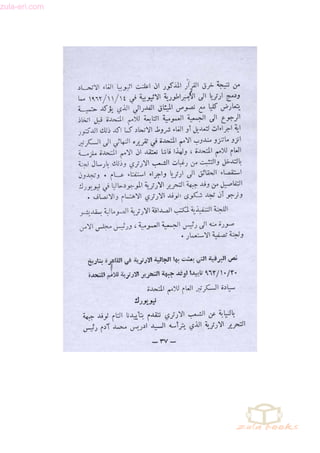 zula-eri.com
من نتيجة خرق القرار المذكور ان اعلنت اثيوبيا الغاء الاتحاد
ودمج ارتريا الى الامبراطورية الاثيوبية في ١٩٦٢/١١/١٤ مما
يتعارض كليا مع نصوص الميثاق الفدرالي الذي يؤكد حتمية
الرجوع الى الجمعية العمومية التابعة للامم المتحدة قبل اتخاذ
اية اجراءات لتعديل أو الغاء شروط الاتحاد كما اكد ذلك الدكتور
انزو ماتنزو مندوب الامم المتحدة في تقريره النهائي الى السكرتير
العام للامم المتحدة ، ولهذا فاننا نعتقد ان الامم المتحدة ملزمـة
بالتدخل والتثبت من رغبات الشعب الارتري وذلك بارسال لجنة
استقصاء الحقائق الى ارتريا واجراء استفتاء عـام • وتجدون
التفاصيل من وفد جبهة التحرير الارترية الموجود حاليا في نيويورك
ونرجو أن تجد شكوى الوفد الارتري الاهتمام والانصاف •
اللجنة التنفيذية لمكتب الصداقة الارترية الصومالية بمقديشو
صورة منه الى رئيس الجمعية العمومية ، ورئيس مجلس الامن
ولجنة تصفية الاستعمار •
نص البرقية التي بعثت بها الجالية الارترية في القاهرة بتاريخ
٩٦٣/١٠/٢٠ تاييدا لوفد جبهة التحرير الارترية للأمم المتحدة
سيادة السكرتير العام للامم المتحدة
نيويورك
بالنيابة عن الشعب الارتري نتقدم بتأييدنا التام لوفد جبهة
التحرير الارترية الذي يترأسه السيد ادريس محمد آدم رئيس
— ٣٧ —
zula books